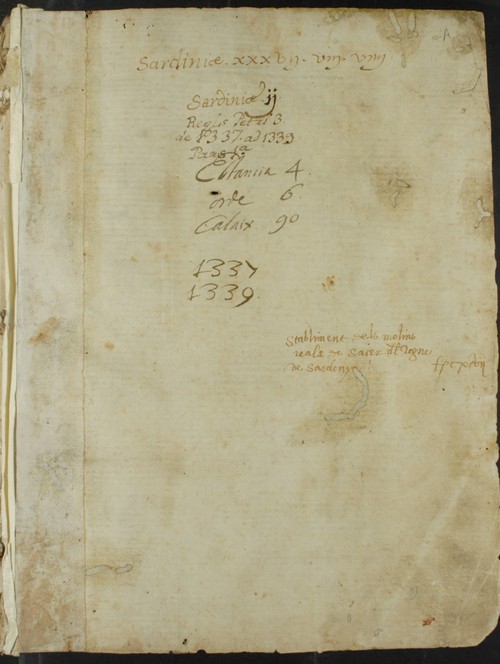 Sardiniæ . xxxvij . viij . viiij
Sardiniæ ij
Regis Petri 3
de 1337. ad 1339
Pars 1ª
Estancia 4.
orde 6.
Calaix 90
1337
1339.
Stabliment dels molins
reals de Sacer del Regne
de Sardenya